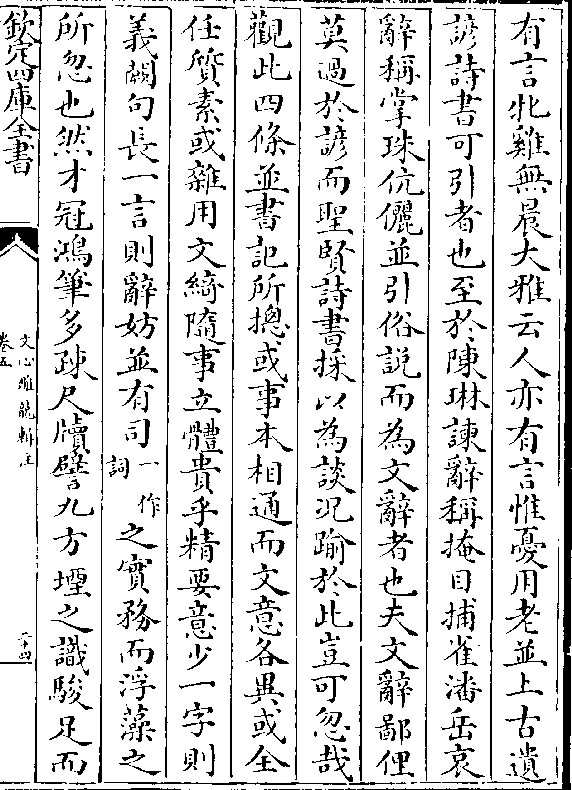 有言牝雞無晨大雅云人亦有言惟憂用老並上古遺
諺詩書可引者也至於陳琳諫辭稱掩目捕雀潘岳哀
辭稱掌珠伉儷並引俗說而為文辭者也夫文辭鄙俚
莫過於諺而聖賢詩書採以為談況踰於此豈可忽哉
觀此四條並書記所摠或事本相通而文意各異或全
任質素或雜用文綺隨事立體貴乎精要意少一字則
義闕句長一言則辭妨並有司一作詞之實務而浮藻之
所忽也然才冠鴻筆多疎尺牘譬九方堙之識駿足而
欽定四庫全書
文心雕龍輯注
卷五
二十四